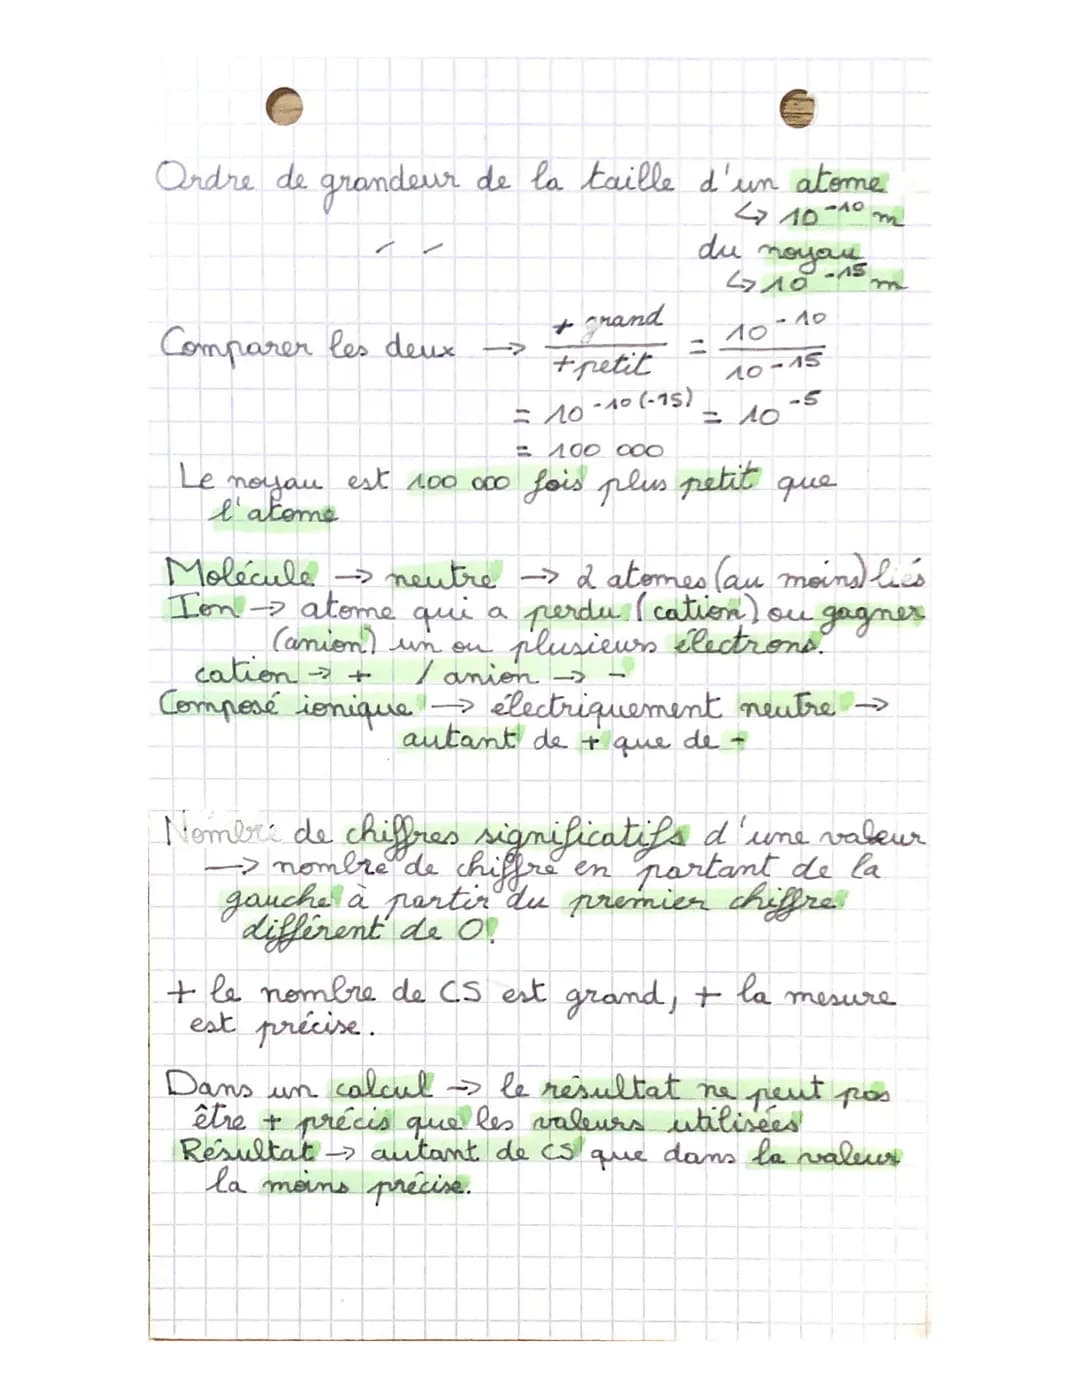 Ordre de grandeur de la taille d'un atome
↳ 10⁻¹⁰ m
" du noyau
↳ 10⁻¹⁵ m
Comparer les deux → + grand / + petit = 10⁻¹⁰ / 10⁻¹⁵
= 10⁻¹⁰ ⁽⁻¹⁵⁾ = 10⁻⁵
= 100 000
Le noyau est 100 000 fois plus petit que
l'atome
Molécule → neutre → 2 atomes (au moins) liés
Ion → atome qui a perdu (cation) ou gagner
(anion) un ou plusieurs électrons.
cation → + / anion → -
Composé ionique → électriquement neutre →
autant de + que de -
Nombre de chiffres significatifs d'une valeur
→ nombre de chiffre en partant de la
gauche à partir du premier chiffre
différent de 0!
+ le nombre de CS est grand, + la mesure
est précise.
Dans un calcul → le résultat ne peut pas
être + précis que les valeurs utilisées
Résultat → autant de CS que dans la valeur
la moins précise.